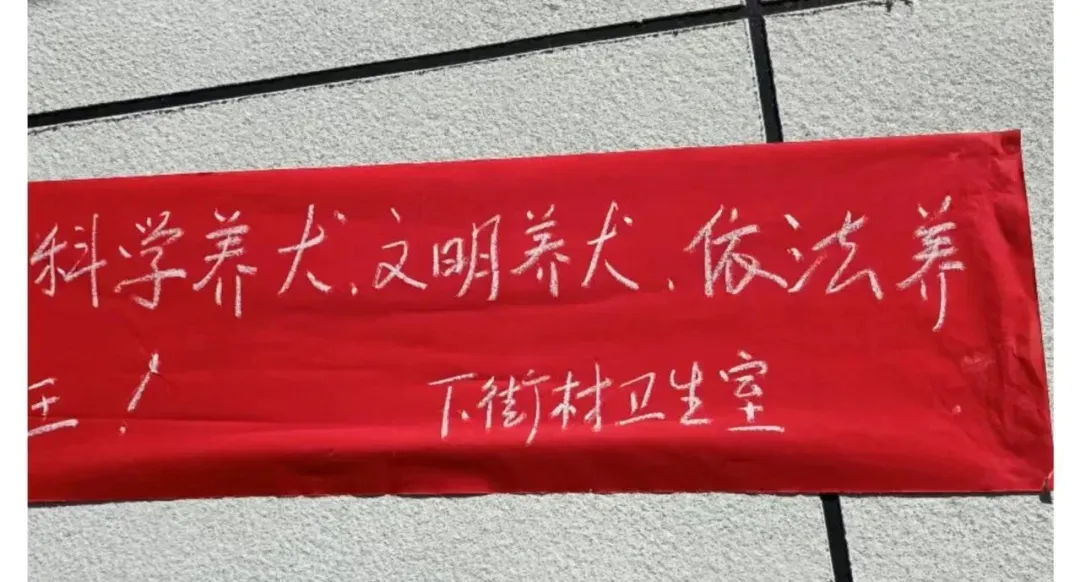 科学养犬、文明养犬、依法养
！ 下街村卫生室